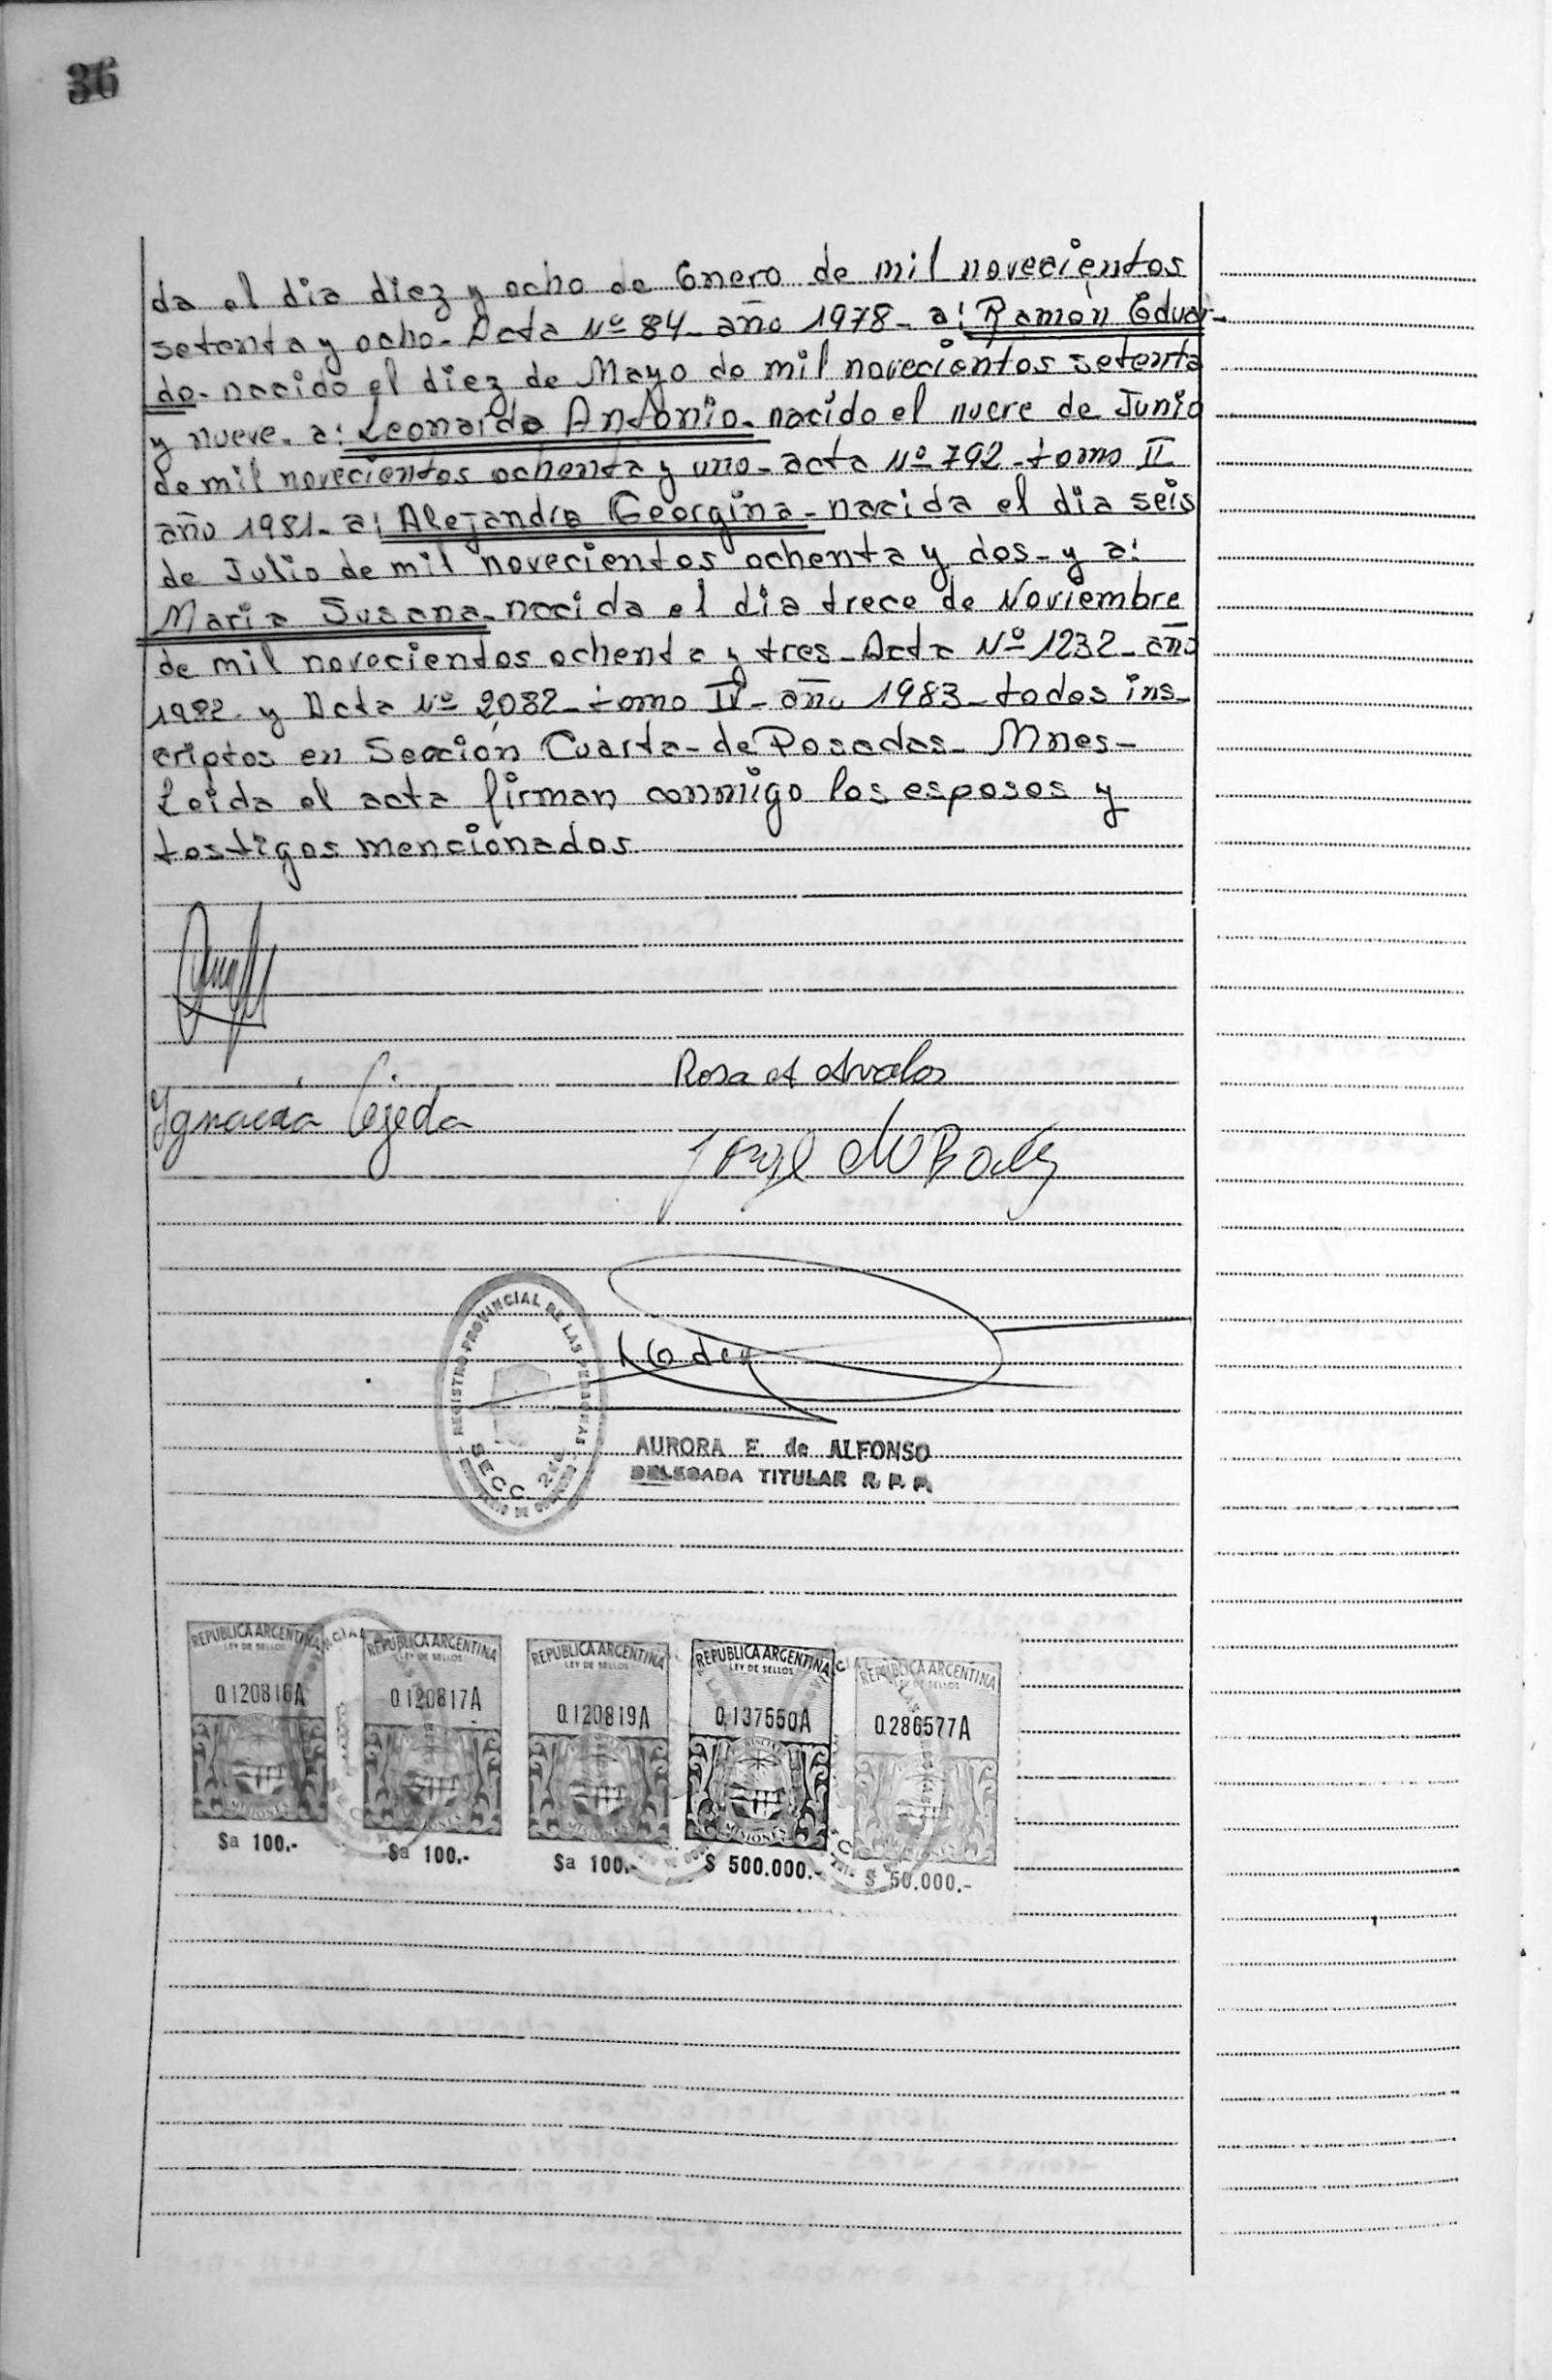 36
da el dia diez y ocho de Enero de mil novecientos
setenta y ocho - Acta Nº 84 - año 1978 - a: Ramón Eduar-
do - nacido el diez de Mayo de mil novecientos setenta
y nueve. a: Leonardo Antonio - nacido el nueve de Junio
de mil novecientos ochenta y uno - acta Nº 792 - tomo II
año 1981 - a: Alejandra Georgina - nacida el dia seis
de Julio de mil novecientos ochenta y dos - y a:
Maria Susana - nacida el dia trece de Noviembre
de mil novecientos ochenta y tres - Acta Nº 1232 - año
1982 - y Acta Nº 2082 - tomo IV - año 1983 - todos ins-
criptos en Sección Cuarta - de Posadas - Mnes -
Leida el acta firman conmigo los esposos y
testigos mencionados
Rosa A Avalos
Ignacia Cejeda
Jorge
REGISTRO PROVINCIAL DE LAS PERSONAS
SECC. 2da
AURORA E. de ALFONSO
DELEGADA TITULAR R. P. P.
REPUBLICA ARGENTINA REPUBLICA ARGENTINA REPUBLICA ARGENTINA REPUBLICA ARGENTINA REPUBLICA ARGENTINA
LEY DE SELLOS LEY DE SELLOS LEY DE SELLOS LEY DE SELLOS LEY DE SELLOS
0.120816A 0.120817A 0.120819A 0.137550A 0.286577A
MISIONES MISIONES MISIONES MISIONES
$a 100.- $a 100.- $a 100.- $ 500.000.- $ 50.000.-